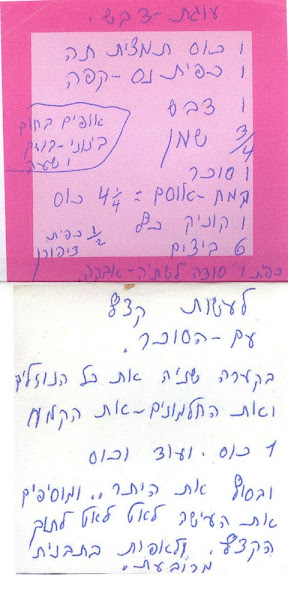 עוגת-דבש.
1 כוס תמצית תה
1 כפית נס-קפה
1 דבש
3/4 שמן
1 סוכר
קמח-אוסם = 4 1/4 כוס
1 קוניק כף
6 ביצים
1/2 כפית
ציפורן
אופים בחום
בינוני-בערך
1 שעה
כפית 1 סודה לשתיה-אבקה.
לעשות קצף
עם-הסוכר.
בקערה שניה את כל הנוזלים
ואת החלמונים-את הקמח
1 כוס. ועוד וכוס
ובסוף את היתר.. ומוסיפים
את העיסה לאט לאט לתוך
הקצף. ולאפות בתבנית
מרובעת.